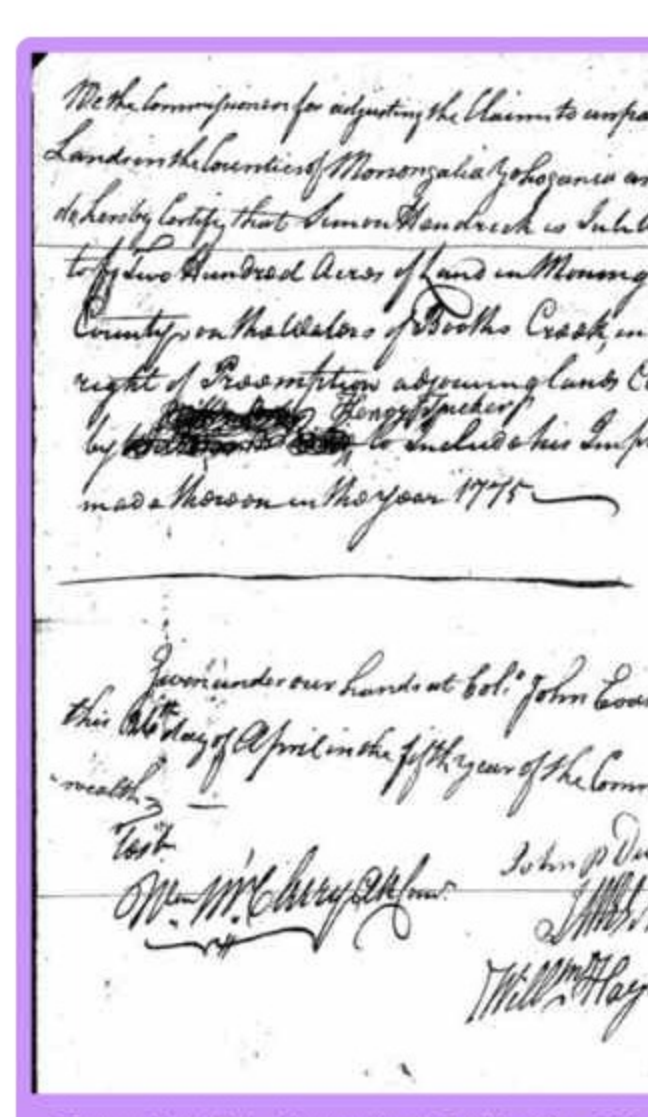 We the Commissioners for adjusting the Claims to unpa
Lands in the Counties of Monongalia Yohogania an
do hereby Certify that Simon Hendrick is Intit
to Two Hundred Acres of Land in Monong
County on the Waters of Booths Creek, in
right of Preemption adjoining lands C
Henry Tucker
by to Include his Imp
made thereon in the year 1775
Given under our hands at Col.º John Evan
this day of April in the fifth year of the Comm
-wealth
Test
Wm Mc.Cleery
John P Du
Willm Hay